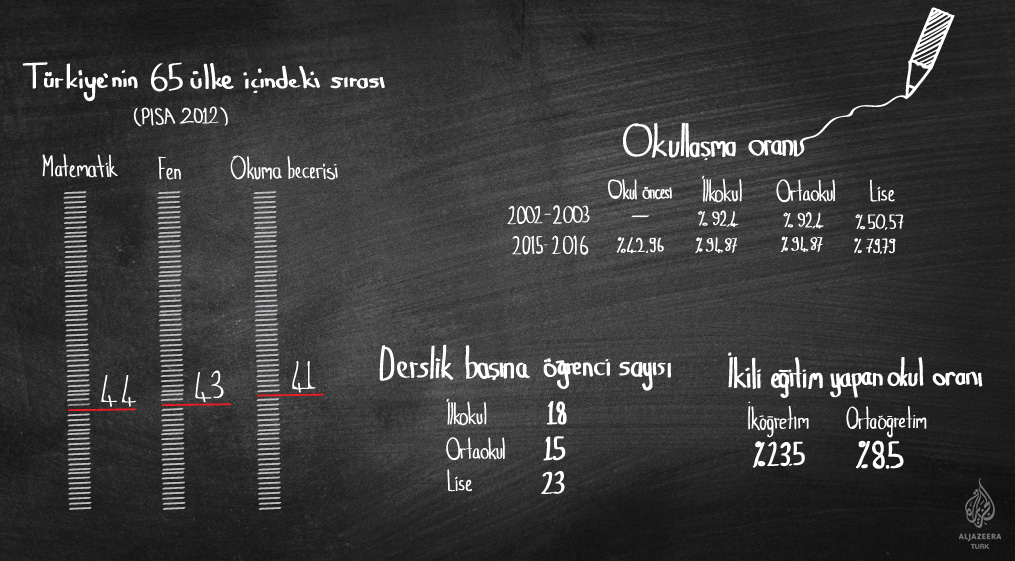 Türkiye'nin 65 ülke içindeki sırası
(PISA 2012)
Matematik Fen Okuma becerisi
44 43 41
Okullaşma oranı
Okul öncesi İlkokul Ortaokul Lise
2002-2003 — % 92,4 % 92,4 %50,57
2015-2016 %42,96 %94,87 %94,87 %79,79
Derslik başına öğrenci sayısı
İlkokul 18
Ortaokul 15
Lise 23
İkili eğitim yapan okul oranı
İköğretim Ortaöğretim
%23.5 %8.5
ALJAZEERA
TURK